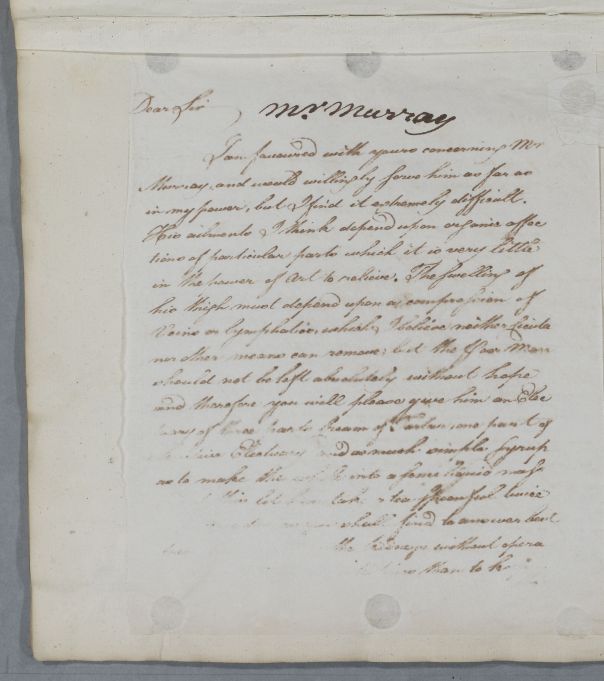 Dear Sir
Mr. Murray
I am favoured with yours concerning Mr
Murray and would willingly serve him as far as
in my power, but I find it extremely difficult.
His ailments I think depend upon organic affec
tions of particular parts which it is very little
in the power of Art to relieve. The swelling of
his thigh must depend upon a compression of
Veins or Lymphatics, which I believe neither Cicuta
nor other means can remove; but the Poor Man
should not be left absolutely without hope
and therefore you will please give him an Elec
tuary of three parts Cream of Tartar, one part of
Electuary and as much simple Syrup
as to make the whole into a semi liquid mass
this let him take a tea spoonful twice
you shall find to answer best
the kidneys without opera
than to